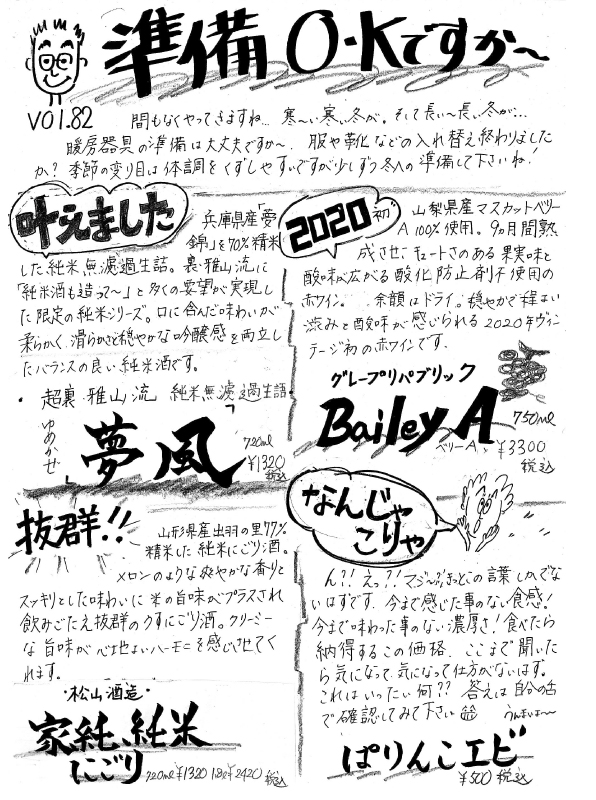 準備O・Kですか～
VOl.82
間もなくやってきますね… 寒～い寒い冬が。そして長い～長い冬が…
暖房器具の準備は大丈夫ですか～。服や靴などの入れ替え終わりました
か？季節の変り目は体調をくずしやすいですが少しずつ冬への準備して下さいね！
叶えました
兵庫県産「夢
錦」を70%精米
した純米無濾過生詰。裏・雅山流に
「純米酒も造って～」と多くの要望が実現し
た限定の純米シリーズ。口に含んだ味わいが
柔らかく、滑らかさと穏やかな吟醸感を両立し
たバランスの良い純米酒です。
・超裏・雅山流 純米無濾過生詰・
ゆめかぜ
「夢風」
720ml
¥1320
税込
2020初
山梨県産マスカットベリー
A 100%使用。9ヵ月間熟
成させ、キュートさのある果実味と
酸味が広がる酸化防止剤不使用の
赤ワイン。余韻はドライ。穏やかで程よい
渋みと酸味が感じられる2020年ヴィン
テージ初の赤ワインです。
グレープリパブリック
Bailey A
ベリーA
750ml
¥3300
税込
抜群!!
山形県産出羽の里77%
精米した純米にごり酒。
メロンのような爽やかな香りと
スッキリとした味わいに米の旨味がプラスされ
飲みごたえ抜群のうすにごり酒。クリーミー
な旨味が心地よいハーモニーを感じさせてく
れます。
・松山酒造・
家純、純米
にごり
720ml ¥1320 1.8l ¥2420 税込
なんじゃ
こりゃ
ん？！えっ？！マジ～？！きっとこの言葉しかでな
いはずです。今まで感じた事のない食感！
今まで味わった事のない濃厚さ！食べたら
納得するこの価格。ここまで聞いた
ら気になって、気になって仕方がないはず。
これはいったい何？？答えは自分の舌
で確認してみて下さい
うんまいよ～
ぱりんこエビ
¥500税込